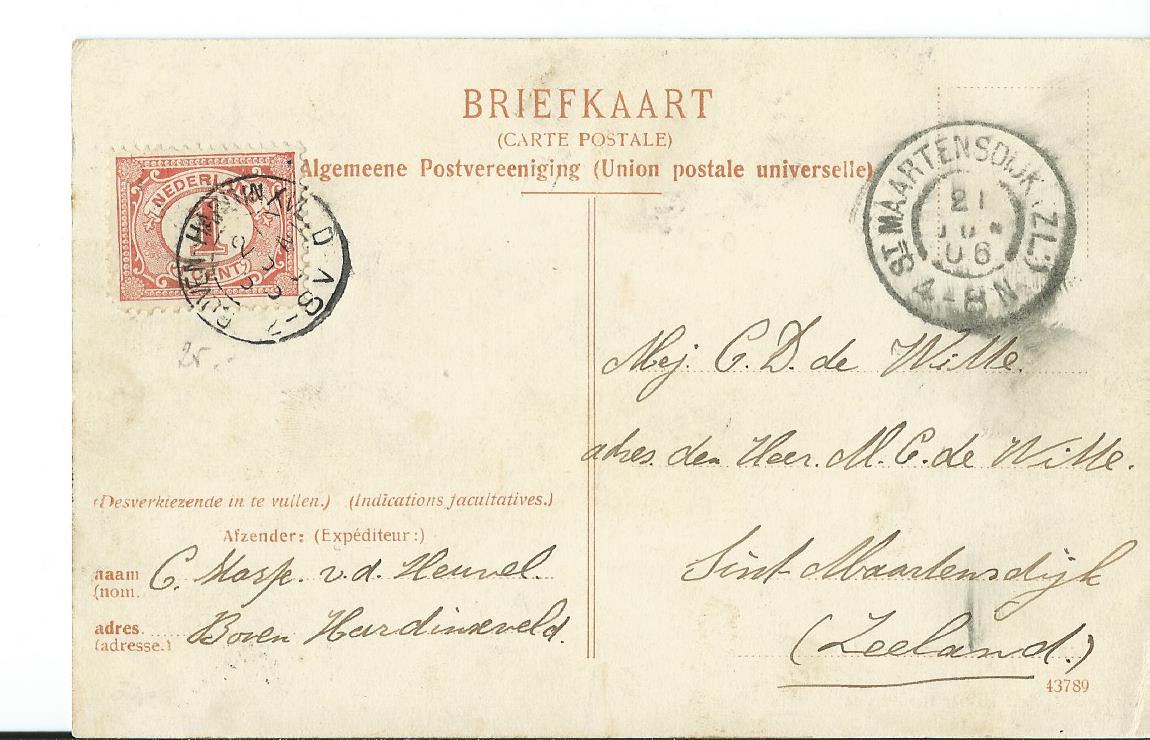 BRIEFKAART
(CARTE POSTALE)
Algemeene Postvereeniging (Union postale universelle)
NEDERL
1
CENT
BOVEN-HARDINXVELD
ST MAARTENSDIJK (ZL.)
21
JUN
06
4-8N
25.-
Mej. C. D. de Witte.
adres den Heer. M. C. de Witte.
Sint Maartensdijk
(Zeeland.)
(Desverkiezende in te vullen.) (Indications facultatives.)
Afzender: (Expéditeur:)
naam C. v.d. Heuvel.
(nom.
adres. Boven Hardinxveld.
(adresse.)
43789